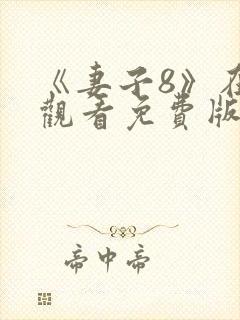 《妻子8》在
觀看免費版
帝中帝